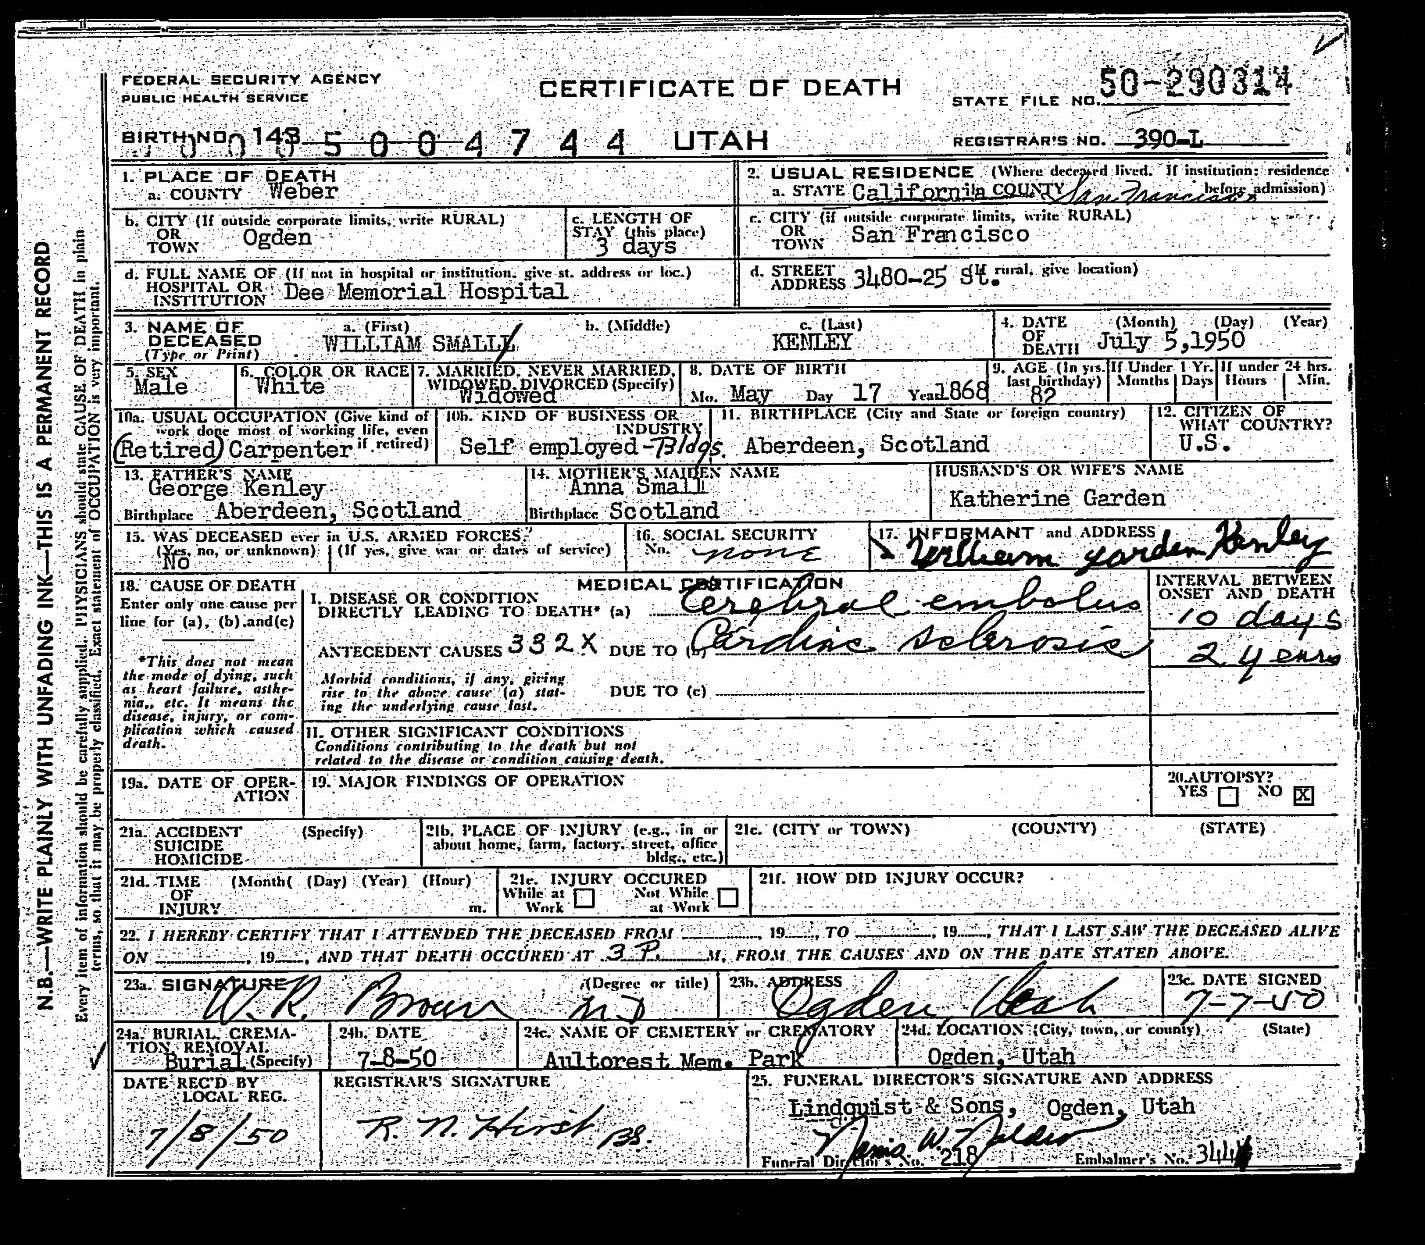 FEDERAL SECURITY AGENCY
PUBLIC HEALTH SERVICE
CERTIFICATE OF DEATH
STATE FILE NO. 50-290314
BIRTH NO. 143
5 0 0 4 7 4 4 UTAH
REGISTRAR'S NO. 390-L
N.B.—WRITE PLAINLY WITH UNFADING INK—THIS IS A PERMANENT RECORD
Every item of information should be carefully supplied. PHYSICIANS should state CAUSE OF DEATH in plain
terms, so that it may be properly classified. Exact statement of OCCUPATION is very important.
1. PLACE OF DEATH
a. COUNTY Weber
2. USUAL RESIDENCE (Where deceased lived. If institution: residence
before admission)
a. STATE California COUNTY San Francisco
b. CITY (If outside corporate limits, write RURAL)
OR
TOWN Ogden
c. LENGTH OF
STAY (this place)
3 days
c. CITY (if outside corporate limits, write RURAL)
OR
TOWN San Francisco
d. FULL NAME OF (If not in hospital or institution, give st. address or loc.)
HOSPITAL OR
INSTITUTION Dee Memorial Hospital
d. STREET (If rural, give location)
ADDRESS 3480-25 St.
3. NAME OF
DECEASED
(Type or Print)
a. (First) b. (Middle) c. (Last)
WILLIAM SMALL KENLEY
4. DATE (Month) (Day) (Year)
OF
DEATH July 5,1950
5. SEX
Male
6. COLOR OR RACE
White
7. MARRIED, NEVER MARRIED,
WIDOWED, DIVORCED (Specify)
Widowed
8. DATE OF BIRTH
Mo. May Day 17 Year 1868
9. AGE (In yrs. last birthday)
82
If Under 1 Yr.
Months Days
If under 24 hrs.
Hours Min.
10a. USUAL OCCUPATION (Give kind of
work done most of working life, even
if retired)
(Retired) Carpenter
10b. KIND OF BUSINESS OR
INDUSTRY
Self employed-Bldgs.
11. BIRTHPLACE (City and State or foreign country)
Aberdeen, Scotland
12. CITIZEN OF
WHAT COUNTRY?
U.S.
13. FATHER'S NAME
George Kenley
Birthplace Aberdeen, Scotland
14. MOTHER'S MAIDEN NAME
Anna Small
Birthplace Scotland
HUSBAND'S OR WIFE'S NAME
Katherine Garden
15. WAS DECEASED ever in U.S. ARMED FORCES?
(Yes, no, or unknown) (If yes, give war or dates of service)
No
16. SOCIAL SECURITY
No. none
17. INFORMANT and ADDRESS
William Garden Kenley
18. CAUSE OF DEATH
Enter only one cause per
line for (a), (b) and (c)
*This does not mean
the mode of dying, such
as heart failure, asthe-
nia, etc. It means the
disease, injury, or com-
plication which caused
death.
MEDICAL CERTIFICATION
I. DISEASE OR CONDITION
DIRECTLY LEADING TO DEATH* (a) Cerebral embolus
ANTECEDENT CAUSES 332X DUE TO (b) Cardiac sclerosis
Morbid conditions, if any, giving
rise to the above cause (a) stat-
ing the underlying cause last.
DUE TO (c)
INTERVAL BETWEEN
ONSET AND DEATH
10 days
2 years
II. OTHER SIGNIFICANT CONDITIONS
Conditions contributing to the death but not
related to the disease or condition causing death.
19a. DATE OF OPER-
ATION
19. MAJOR FINDINGS OF OPERATION
20. AUTOPSY?
YES NO X
21a. ACCIDENT (Specify)
SUICIDE
HOMICIDE
21b. PLACE OF INJURY (e.g., in or
about home, farm, factory, street, office
bldg., etc.)
21c. (CITY or TOWN) (COUNTY) (STATE)
21d. TIME (Month( (Day) (Year) (Hour)
OF
INJURY m.
21e. INJURY OCCURED
While at Work Not While at Work
21f. HOW DID INJURY OCCUR?
22. I HEREBY CERTIFY THAT I ATTENDED THE DECEASED FROM , 19 , TO , 19 , THAT I LAST SAW THE DECEASED ALIVE
ON , 19 , AND THAT DEATH OCCURED AT 3 P. M, FROM THE CAUSES AND ON THE DATE STATED ABOVE.
23a. SIGNATURE (Degree or title)
W.R. Brown MD
23b. ADDRESS
Ogden, Utah
23c. DATE SIGNED
7-7-50
24a. BURIAL, CREMA-
TION REMOVAL
Burial (Specify)
24b. DATE
7-8-50
24c. NAME OF CEMETERY or CREMATORY
Aultorest Mem. Park
24d. LOCATION (City, town, or county) (State)
Ogden, Utah
DATE REC'D BY
LOCAL REG.
7/8/50
REGISTRAR'S SIGNATURE
R. N. Hirst BS.
25. FUNERAL DIRECTOR'S SIGNATURE AND ADDRESS
Lindquist & Sons, Ogden, Utah
Funeral Director's No. 218 Embalmer's No. 344